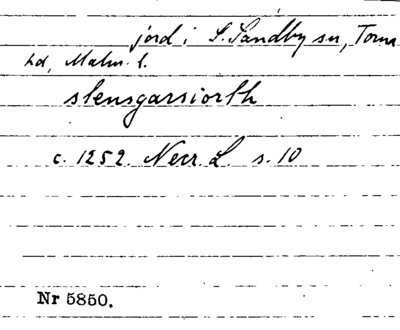 jord i S. Sandby sn, Torna
hd, Malm. l.
stensgarsiorth
c. 1252. Necr. L. s. 10
Nr 5850.